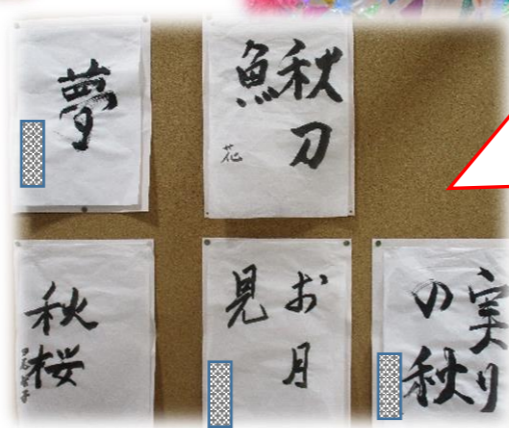 夢
秋刀
魚
花
秋桜
お月
見
実り
の秋